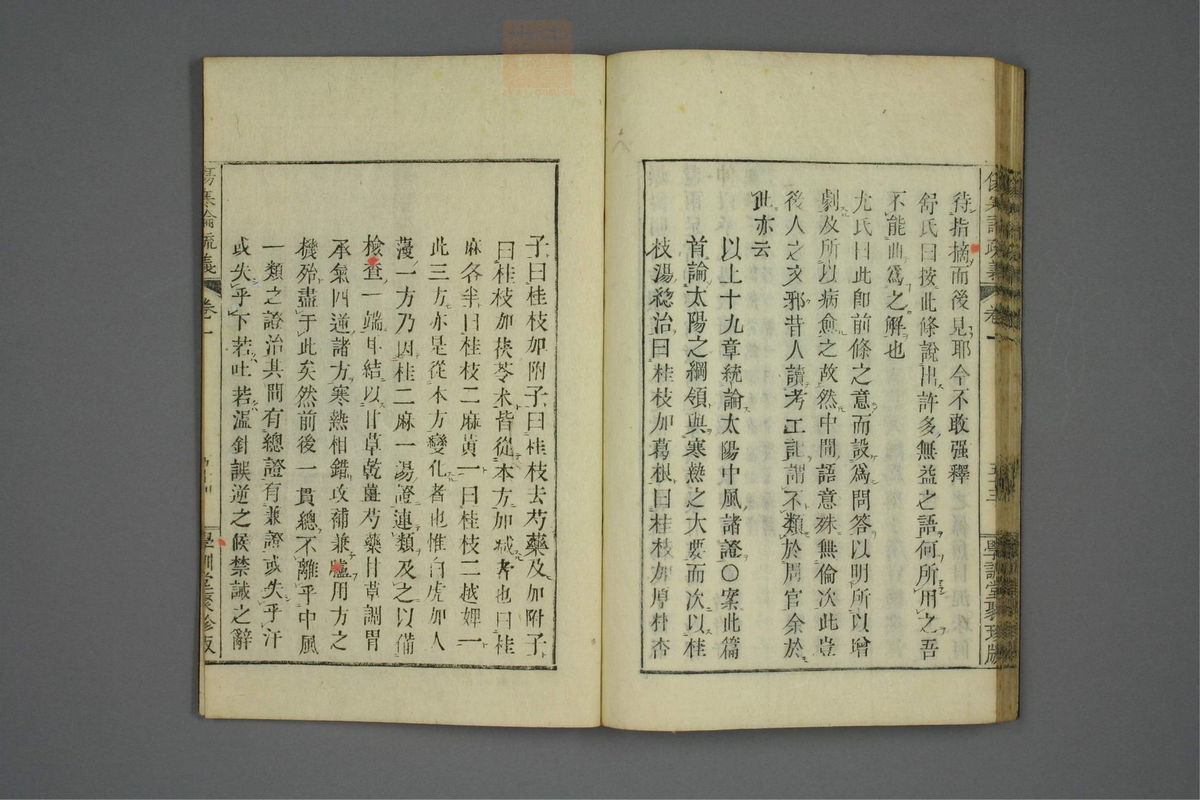 待指摘而後見耶今不敢强釋
舒氏曰按此條說出許多無益之語何所用之吾
不能曲爲之解也
尤氏曰此即前條之意而設爲問答以明所以增
劇及所以病愈之故然中間語意殊無倫次此豈
後人之文邪昔人讀考工記謂不類於周官余於
此亦云
以上十九章統論太陽中風諸證〇案此篇
首論太陽之綱領與寒熱之大要而次以桂
枝湯總治曰桂枝加葛根曰桂枝加厚朴杏
子曰桂枝加附子曰桂枝去芍藥及加附子
曰桂枝加茯苓朮皆從本方加減者也曰桂
麻各半曰桂枝二麻黃一曰桂枝二越婢一
此三方亦是從本方變化者也惟白虎加人
薓一方乃因桂二麻一湯證連類及之以備
檢查一端耳結以甘草乾薑芍藥甘草調胃
承氣四逆諸方寒熱相錯攻補兼臚用方之
機殆盡于此矣然前後一貫總不離乎中風
一類之證治其間有總證有兼證或失乎汗
或失乎下若吐若溫針誤逆之候禁誡之辭
傷寒論疏義
卷一
五十三
學訓堂聚珍版
傷寒論疏義
卷一
學訓堂聚珍版